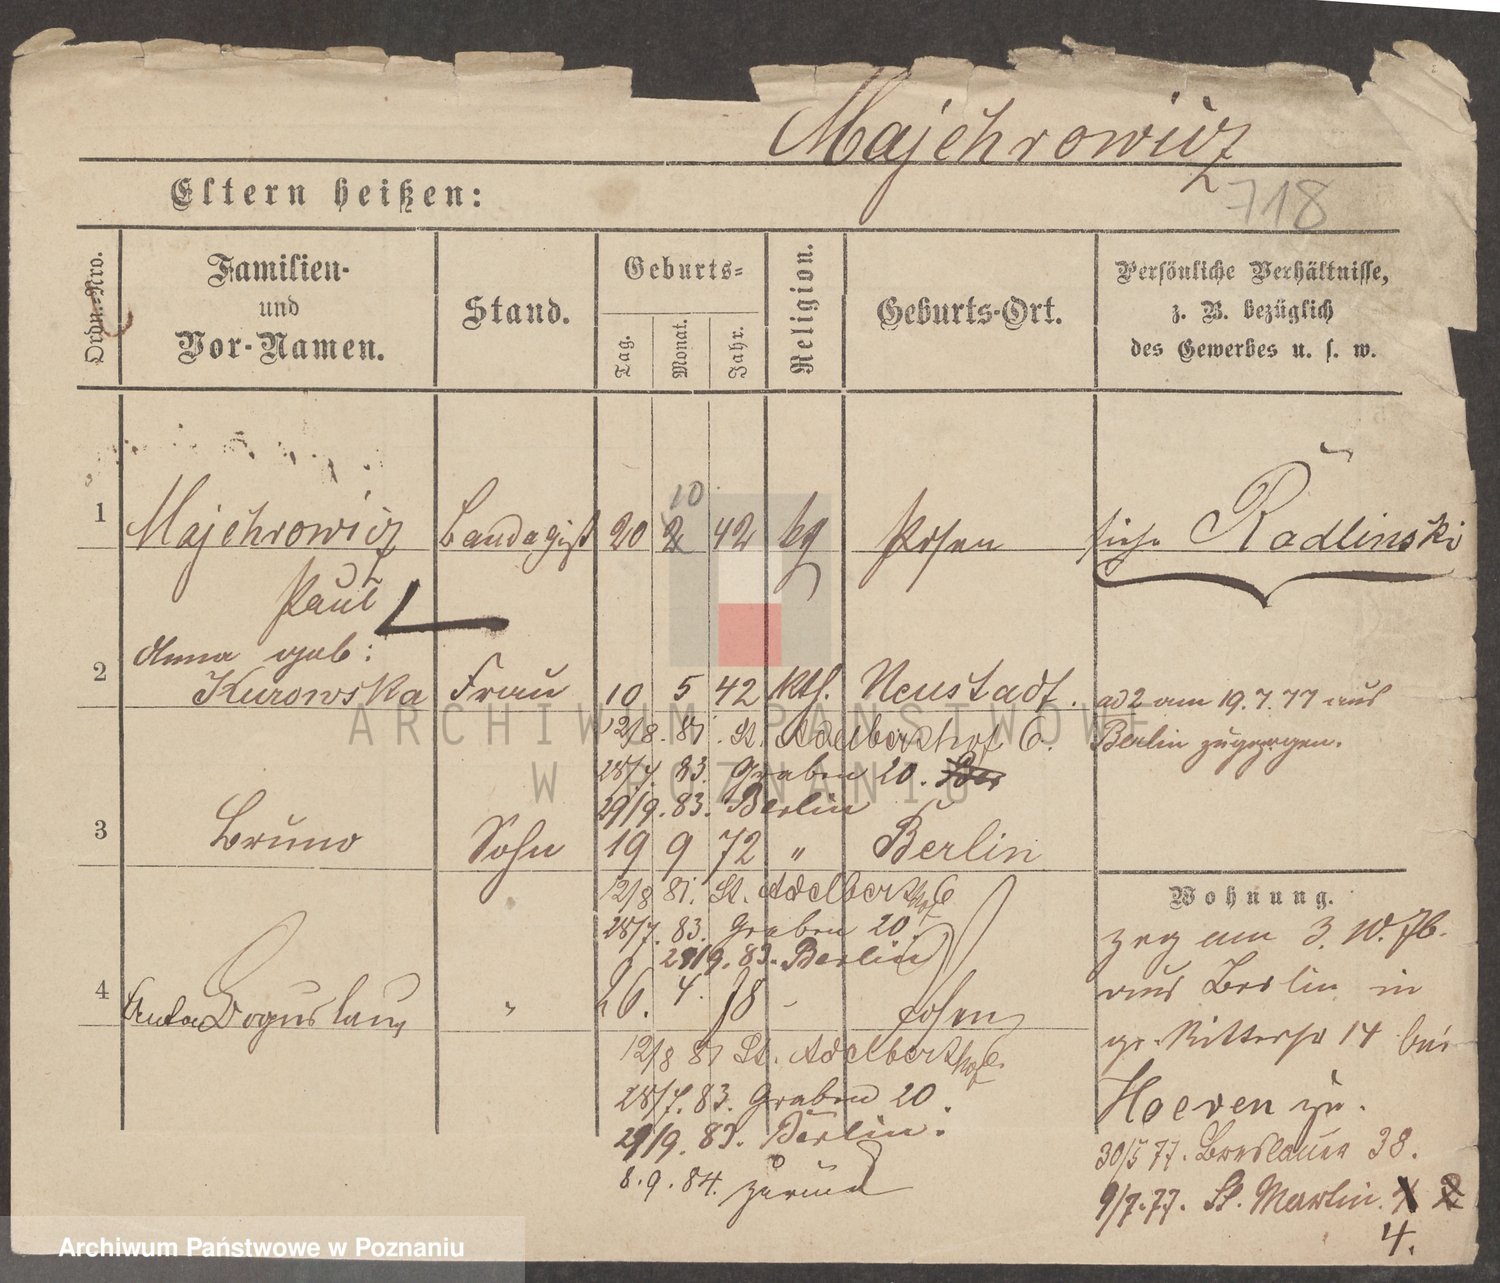 Majchrowicz
718
Eltern heißen:
Ordn.-Nro.
Familien-
und
Vor-Namen.
Stand.
Geburts-
Tag.
Monat.
Jahr.
Religion.
Geburts-Ort.
Persönliche Verhältnisse,
z. B. bezüglich
des Gewerbes u. s. w.
10
1 Majchrowicz Bandagist 20 2 42 kg Posen siehe Radlinski
Paul
Anna geb:
2 Kurowska Frau 10 5 42 kth. Neustadt. ad 2 am 19.7.77 aus
12/8. 81. St. Adelberthof 6. Berlin zugezogen.
28/7. 83. Graben 20. Ber
29/9. 83. Berlin
3 Bruno Sohn 19 9 72 " Berlin
12/8 81. St. Adelberthof 6
Wohnung.
28/7. 83. Graben 20.
29/9. 83. Berlin
zog am 3.
aus Berlin in
4 Boguslaus " 26. 4. 78 - Posen
gr. Ritterstr 14 bei
12/8 81 St. Adelberthof 6.
28/7. 83. Graben 20.
Hoeven zu.
29/9. 83. Berlin.
30/5 77. Breslauer 38.
8.9.84. zurück
9/7.77. St. Martin. 4 2
4.
ARCHIWUM PAŃSTWOWE
W POZNANIU
Archiwum Państwowe w Poznaniu